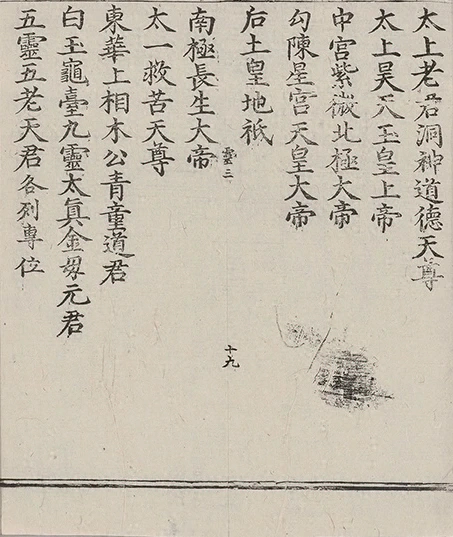 太上老君洞神道德天尊
太上昊天玉皇上帝
中宮紫微北極大帝
勾陳星宮天皇大帝
后土皇地祇
靈三
十九
南極長生大帝
太一救苦天尊
東華上相木公青童道君
白玉龜臺九靈太真金毋元君
五靈五老天君各列專位